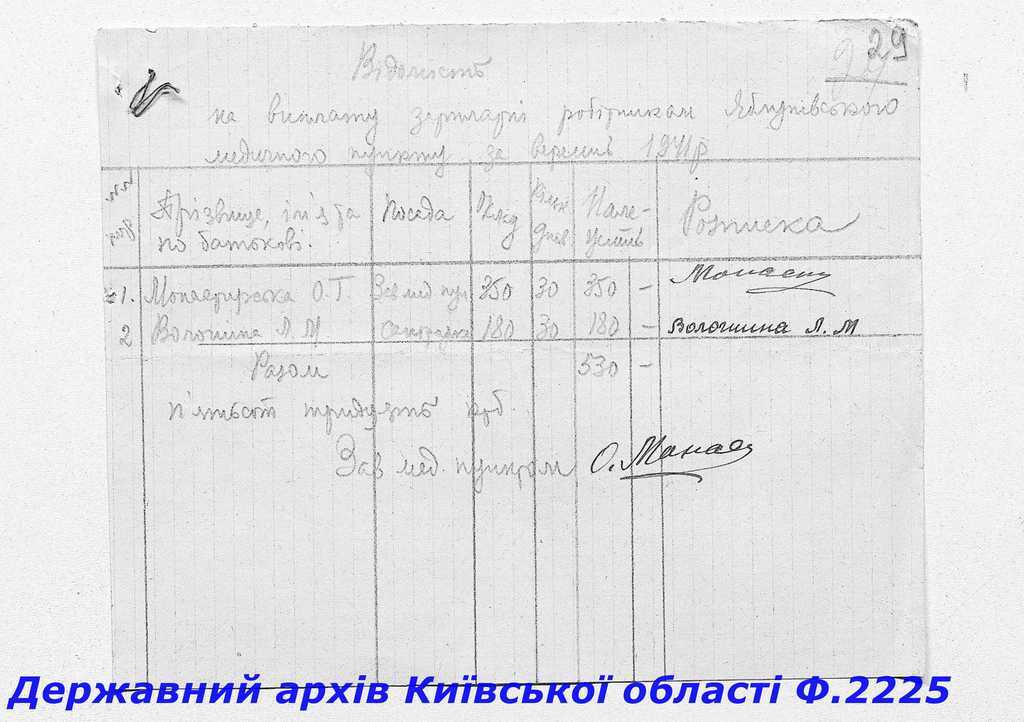 29
Відомість
на виплату зарплатні робітникам Яблунівського
медичного пункту за вересень 1941р
Прізвище, ім'я та по батькові. Посада Оклад Кільк днів Належить Розписка
1. Монастирська О.Т. Зав мед пун 350 30 350 – Монаст
2 Волошина Л М санітарка 180 30 180 – Волошина Л. М
Разом 530 –
п'ятьсот тридцять руб.
Зав мед. пунктом О. Монас
Державний архів Київської області Ф.2225